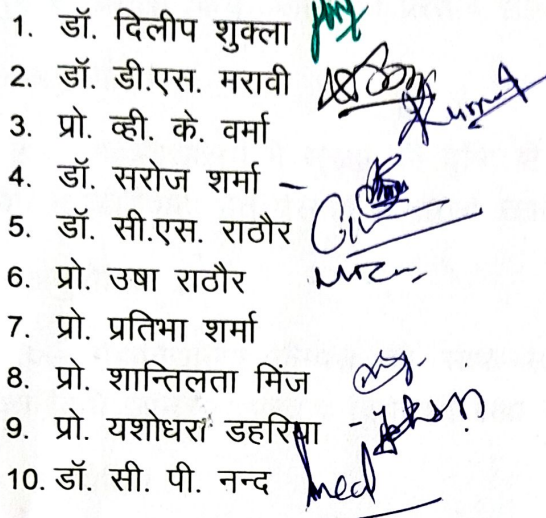 1. डॉ. दिलीप शुक्ला
2. डॉ. डी.एस. मरावी
3. प्रो. व्ही. के. वर्मा
4. डॉ. सरोज शर्मा -
5. डॉ. सी.एस. राठौर
6. प्रो. उषा राठौर
7. प्रो. प्रतिभा शर्मा
8. प्रो. शान्तिलता मिंज
9. प्रो. यशोधरा डहरिया -
10. डॉ. सी. पी. नन्द